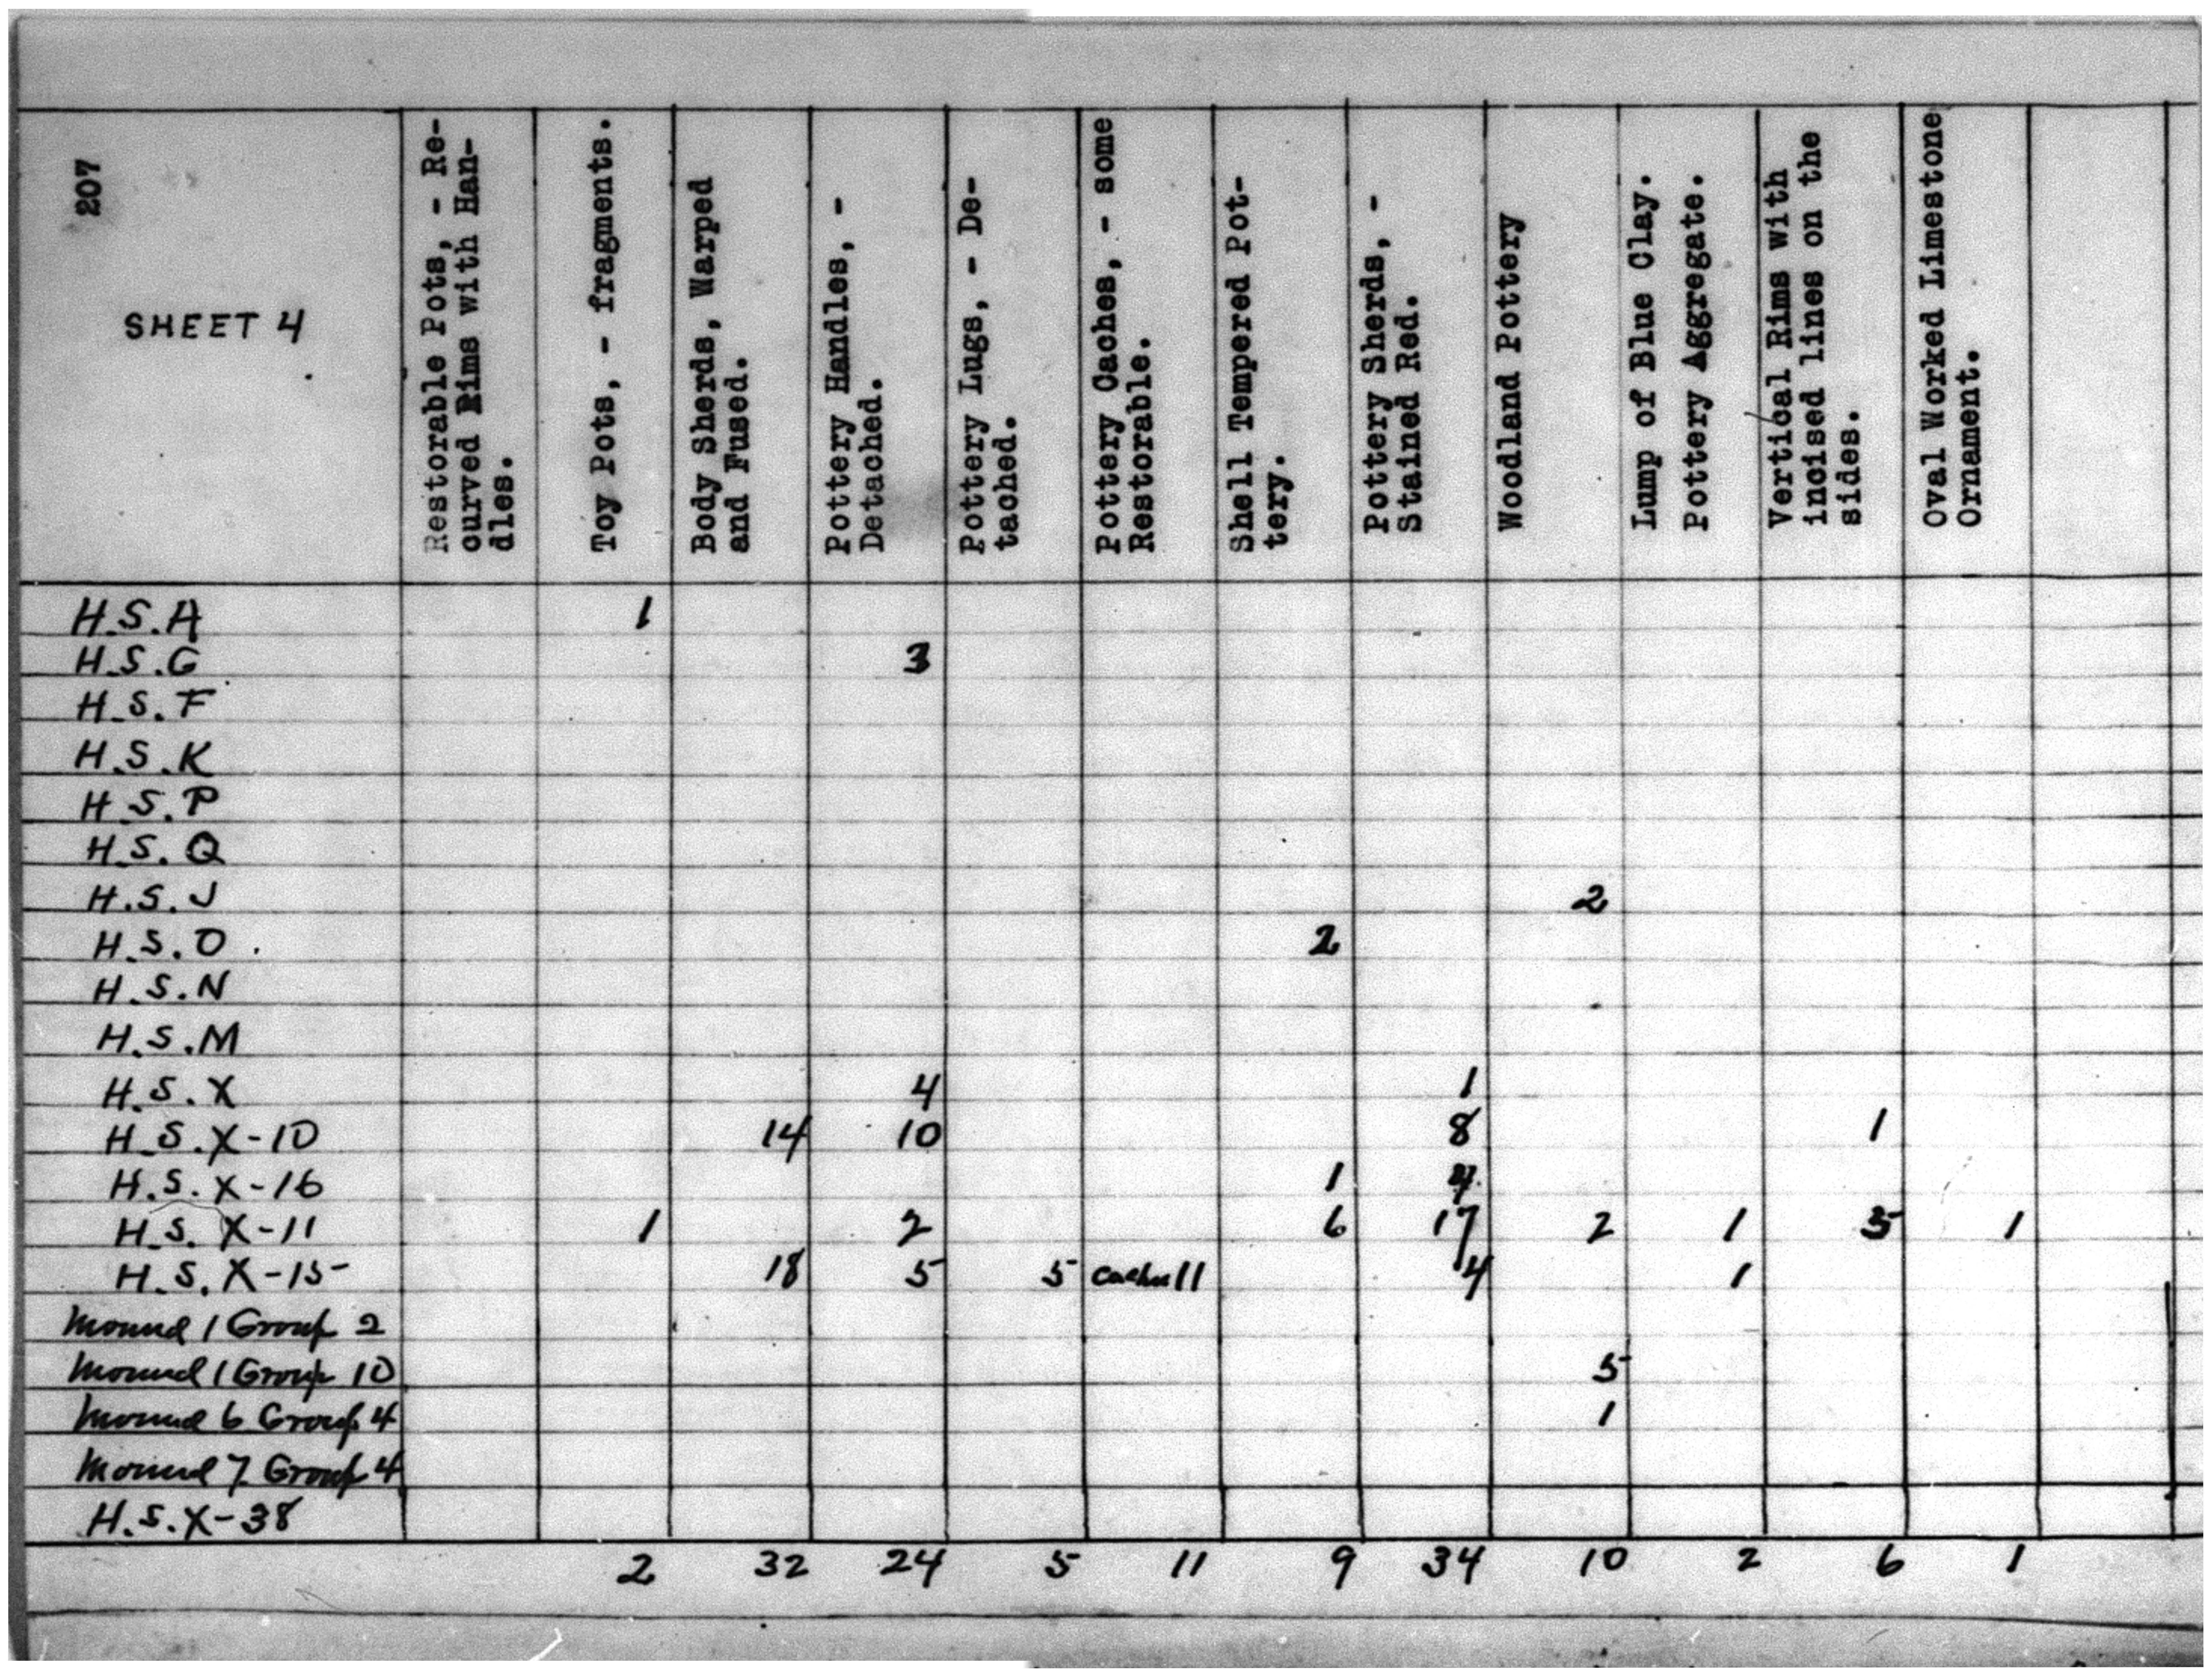 207
SHEET 4
Restorable Pots, - Re-
curved Rims with Han-
dles.
Toy Pots, - fragments.
Body Sherds, Warped
and Fused.
Pottery Handles, -
Detached.
Pottery Lugs, - De-
tached.
Pottery Caches, - some
Restorable.
Shell Tempered Pot-
tery.
Pottery Sherds, -
Stained Red.
Woodland Pottery
Lump of Blue Clay.
Pottery Aggregate.
Vertical Rims with
incised lines on the
sides.
Oval Worked Limestone
Ornament.
H.S.A 1
H.S.G 3
H.S.F
H.S.K
H.S.P
H.S.Q
H.S.J 2
H.S.O. 2
H.S.N
H.S.M
H.S.X 4 1
H.S.X-10 14 10 8 1
H.S.X-16 1 4
H.S.X-11 1 2 6 17 2 1 5 1
H.S.X-15 18 5 5 11 4 1
Mound 1 Group 2
Mound 1 Group 10 5
Mound 6 Group 4 1
Mound 7 Group 4
H.S.X-38
2 32 24 5 11 9 34 10 2 6 1